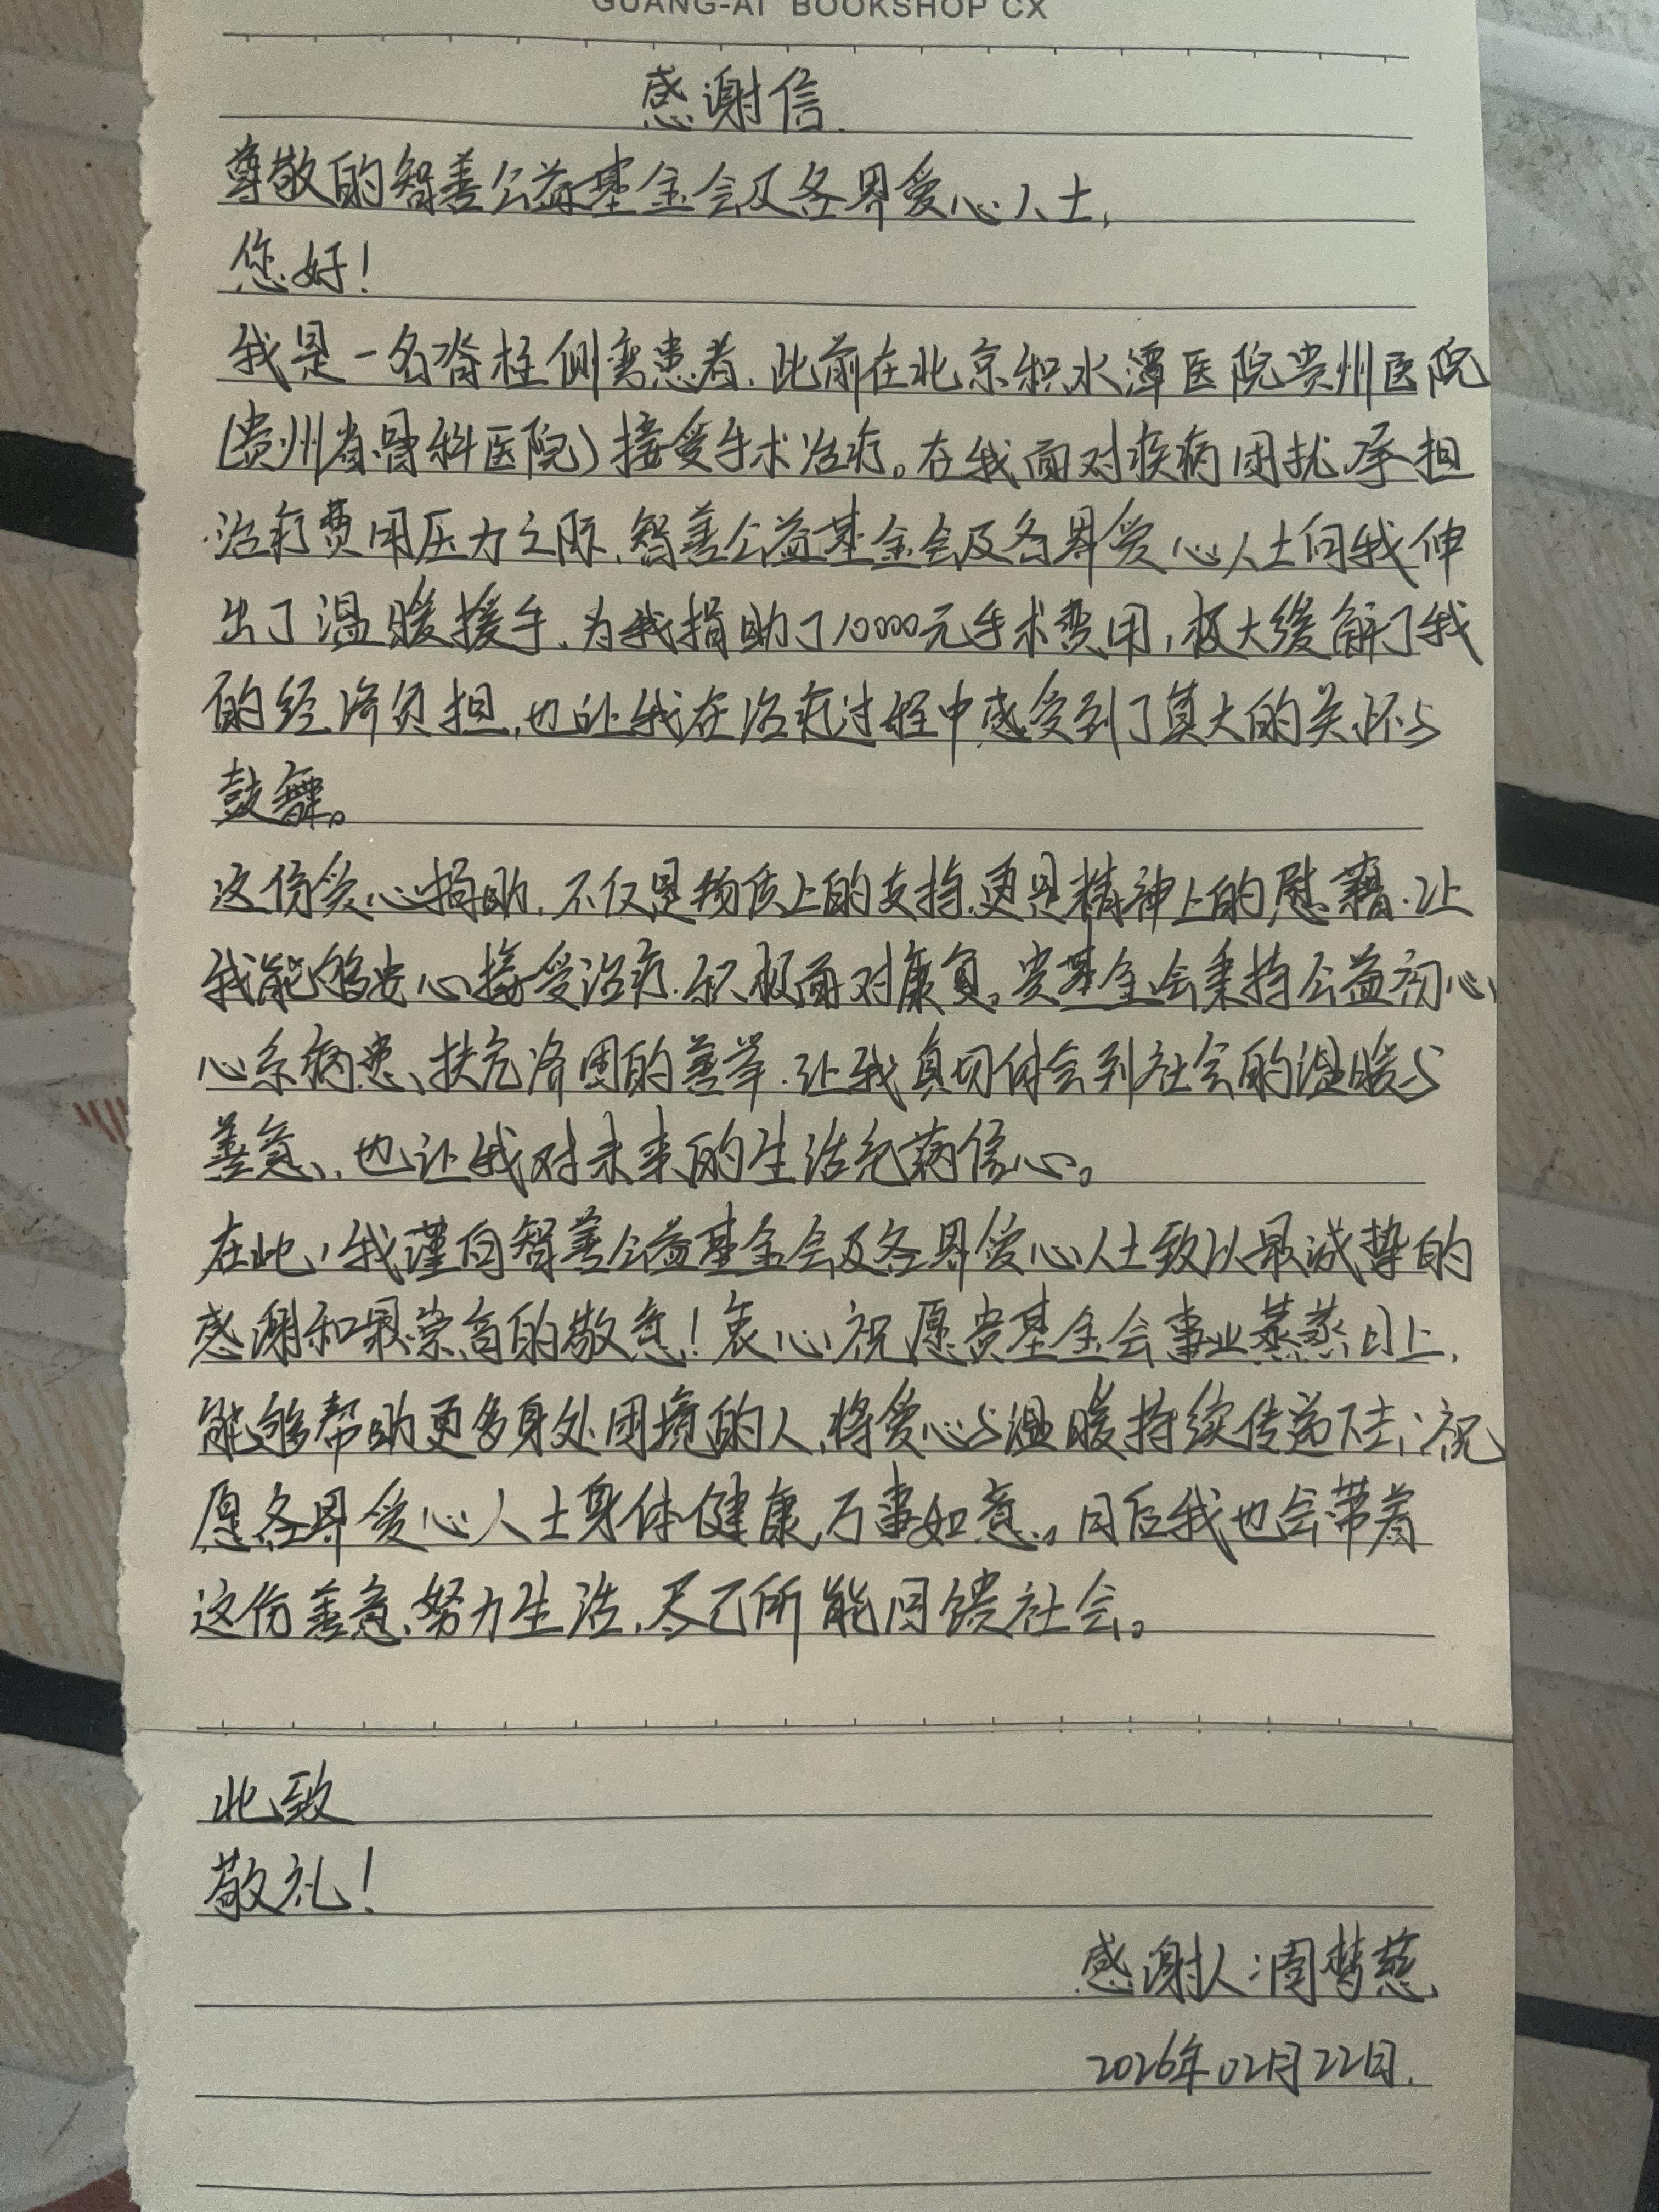 GUANG-AI BOOKSHOP CX
感谢信.
尊敬的智善公益基金会及各界爱心人士,
您好!
我是一名脊柱侧弯患者,此前在北京积水潭医院贵州医院
(贵州省骨科医院)接受手术治疗。在我面对疾病困扰、承担
治疗费用压力之际,智善公益基金会及各界爱心人士向我伸
出了温暖援手,为我捐助了10000元手术费用,极大缓解了我
的经济负担,也让我在治疗过程中感受到了莫大的关怀与
鼓舞。
这份爱心捐助,不仅是物质上的支持,更是精神上的慰藉,让
我能够安心接受治疗,积极面对康复。贵基金会秉持公益初心、
心系病患、扶危济困的善举,让我真切体会到社会的温暖与
善意,也让我对未来的生活充满信心。
在此,我谨向智善公益基金会及各界爱心人士致以最诚挚的
感谢和最崇高的敬意!衷心祝愿贵基金会事业蒸蒸日上,
能够帮助更多身处困境的人,将爱心与温暖持续传递下去;祝
愿各界爱心人士身体健康,万事如意。日后我也会带着
这份善意,努力生活,尽己所能回馈社会。
此致
敬礼!
感谢人:周梦慈
2026年02月22日.